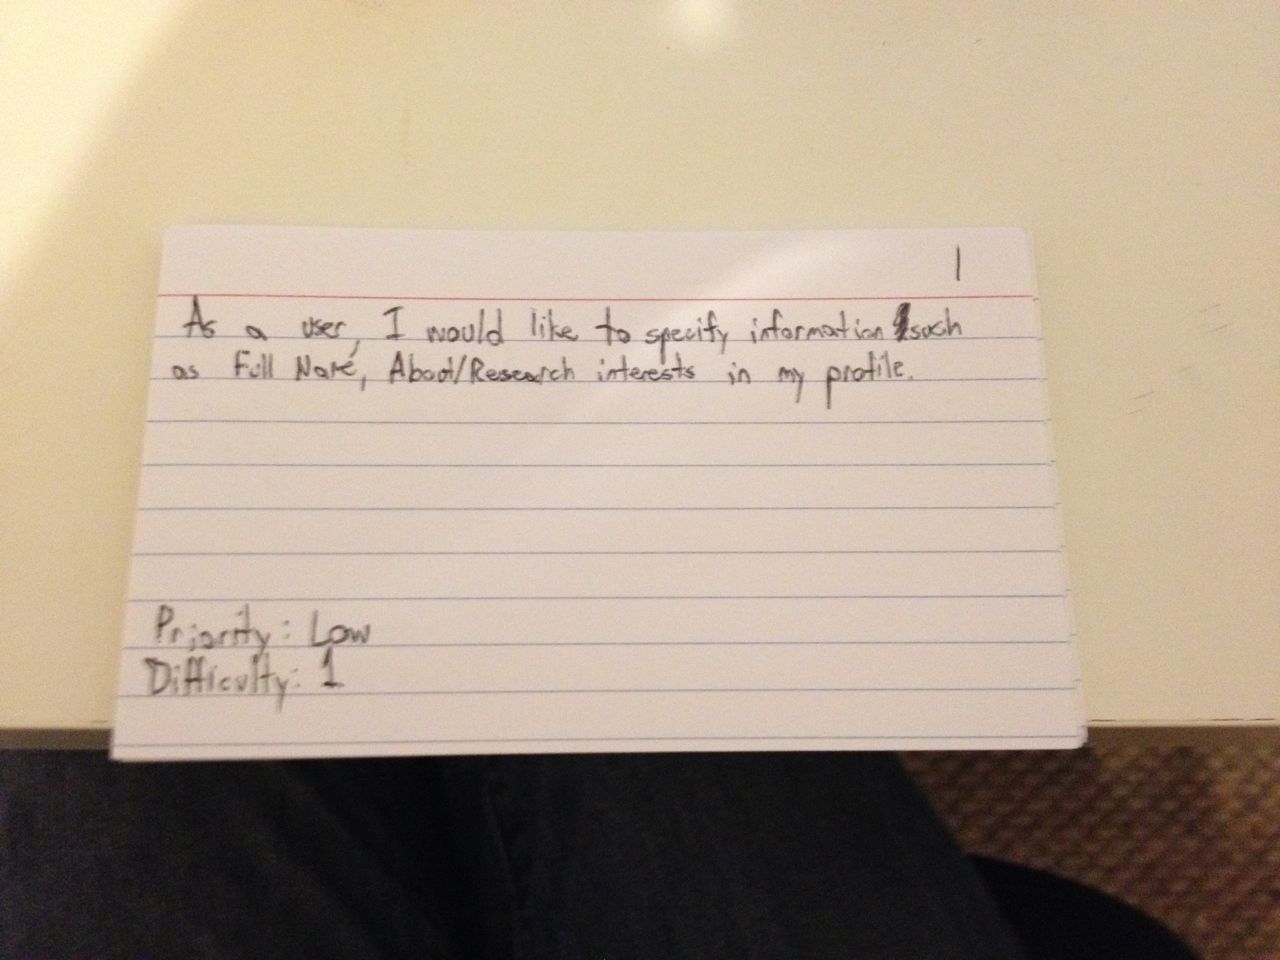 1
As a user, I would like to specify information such
as Full Name, About/Research interests in my profile.
Priority: Low
Difficulty: 1